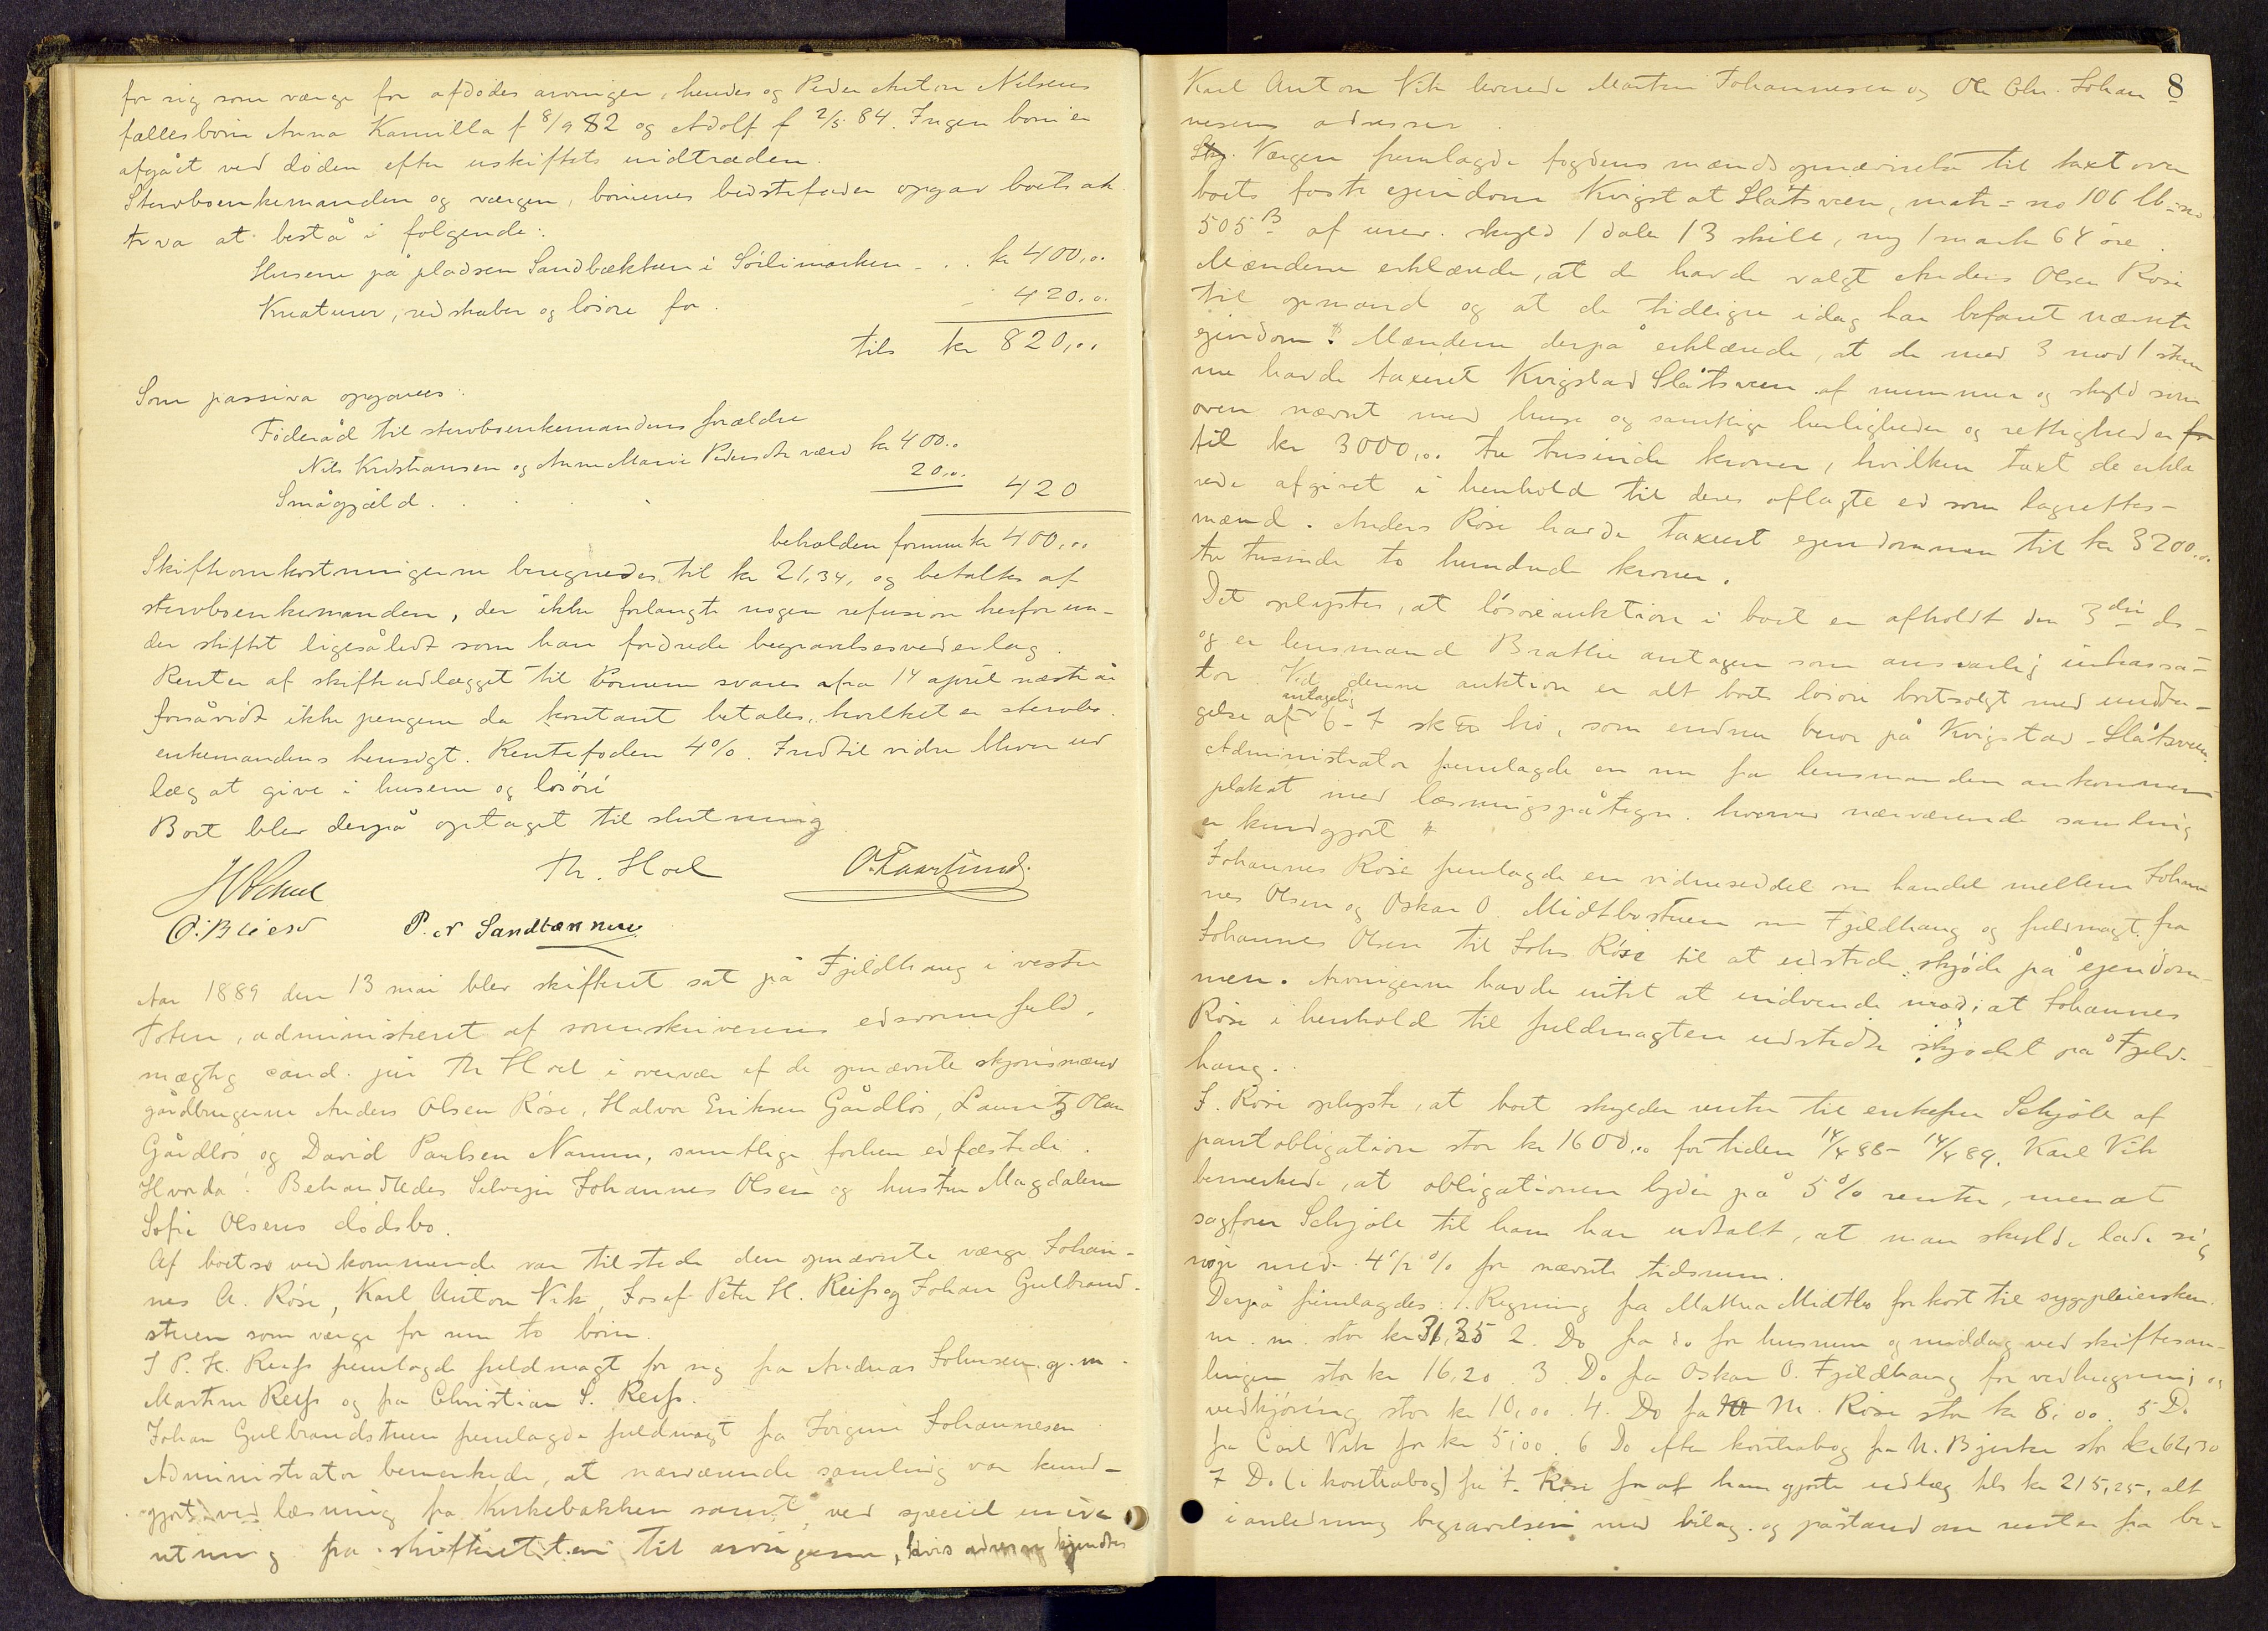 for sig som værge for afdødes arvinger, hendes og Peder Anton Nilsens
fællesbørn Anna Kamilla f 8/9 82 og Adolf f 2/5 84. Ingen børn er
afgået ved døden efter uskiftets indtræden.
Stervboenkemanden og værgen, børnenes bedstefader opgav boets ak
tiva at bestå i følgende:
Husene på pladsen Sandbækken i Sørlimarken - . . kr 400,00
Kreaturer, redskaber og løsøre for . - 420,00
tils kr 820,00
Som passiva opgaves:
Føderåd til stervboenkemandens forældre
Nils Kristiansen og Anne Marie Pedersdtr værd kr 400,00
Smågjæld . . . . 20,00 420
beholden formue kr 400,00
Skifteomkostningerne beregnedes til kr 21,34, og betaltes af
stervboenkemanden, der ikke forlangte nogen refusion herfor un-
der skiftet ligesålidt som han fordrede begravelsesvederlag.
Renter af skifteudlægget til børnene svares fra 14 april næste år
forsåvidt ikke pengene da kontant betales, hvilket er stervbo
enkemandens hensigt. Rentefoden 4%. Indtil videre bliver ud
læg at give i husene og løsøre
Boet blev derpå optaget til slutning
Th. Hoel
P. N Sandbakken
Aar 1889 den 13 mai blev skifteret sat på Fjeldhaug i vestre
Toten, administreret af sorenskriverens edsvorne fuld-
mægtig cand. jur Th Hoel i overvær af de opnævnte skjønsmænd
gårdbrugerne Anders Olsen Røise, Halvor Eriksen Gårdløs, Lauritz Olsen
Gårdløs og David Paulsen Narum, samtlige forhen edfæstede.
Hvorda: Behandledes Selveier Johannes Olsen og hustru Magdalene
Sofie Olsens dødsbo.
Af boets vedkommende var tilstede den opnævnte værge Johan-
nes A. Røise, Karl Anton Vik, Josef Peter H. Reifs og Johan Gulbrand-
stuen som værge for sine to børn.
J P. H. Reifs fremlagde fuldmagt for sig fra Andreas Johnsen g. m.
Martine Reifs og fra Christian S. Reifs.
Johan Gulbrandstuen fremlagde fuldmagt fra Jørgine Johannesen
Administrator bemerkede, at nærværende samling var kund-
gjort ved læsning fra Kirkebakken samt ved speciel under
retning fra skifteretten til arvingerne, hvis adresse kjendtes
8
Karl Anton Vik leverede Martin Johannesen og Ole Chr. Johan
nesens adresser.
Værgen fremlagde fogdens mændsopnævnelse til taxt over
boets faste eiendom Kvigstat Slåtsveen, matr = no 106 lb=no
505 B af urev. skyld 1 daler 13 skill, ny 1 mark 64 øre.
Mændene erklærede, at de havde valgt Anders Olsen Røise
til opmand og at de tidligere idag har befaret nævnte
eiendom. Mændene derpå erklærede, at de med 3 mod 1 stem
me havde taxeret Kvigstad Slåtsveen af nummer og skyld som
oven nævnt med huse og samtlige herligheder og rettigheder
til kr 3000,00 tre tusinde kroner, hvilken taxt de erklæ
rede afgivet i henhold til deres aflagte ed som lagrettes-
mænd. Anders Røise havde taxeret eiendommen til kr 3200,00
tre tusinde to hundrede kroner.
Det oplystes, at løsøreauktion i boet er afholdt den 3die ds-
og er lensmand Brattlie antagen som ansvarlig inkassa-
tor. Ved denne auktion er alt boets løsøre bortsolgt med undta-
gelse af 6 - 7 sk hø, som endnu beror på Kvigstad-Slåtsveen.
Administrator fremlagde en nu fra lensmanden ankommen
plakat med læsningspåtegn. hvorved nærværende samling
er kundgjort
Johannes Røise fremlagde en vidneseddel om handel mellem Johan
nes Olsen og Oskar O. Midtbøstuen om Fjeldhaug og fuldmagt fra
Johannes Olsen til Johs Røise til at udstede skjøde på eiendom-
men. Arvingerne havde intet at indvende mod, at Johannes
Røise i henhold til fuldmagten udstedte skjødet på Fjeld-
haug.
J. Røise oplyste, at boet skylder renter til enkefru Schjøle af
pantobligation stor kr 1600,00 for tiden 14/4 88 - 14/4 89. Karl Vik
bemerkede, at obligationen lyder på 5% rente, men at
sagfører Schjøle til ham har udtalt, at man skulde lade sig
nøie med 4 1/2% for nævnte tidsrum.
Derpå fremlagdes: 1. Regning fra Mathea Midtbø for kost til sygepleiersken
m. m. stor kr 31,35 2. Do fra do for husrum og middag ved skiftesam-
lingen stor kr 16,20 3. Do fra Oskar O. Fjeldhaug for vedhugning og
vedkjøring stor kr 10,00. 4. Do fra M. Røise stor kr 8,00. 5 Do
fra Carl Vik for kr 5,00. 6 Do efter kontrabog fra N. Bjerke stor kr 62,30
7 Do (i kontrabog) fra J. Røise for af ham gjorte udlæg tils kr 215,25, alt
i anledning begravelsen med bilag og påstand om renter fra be-